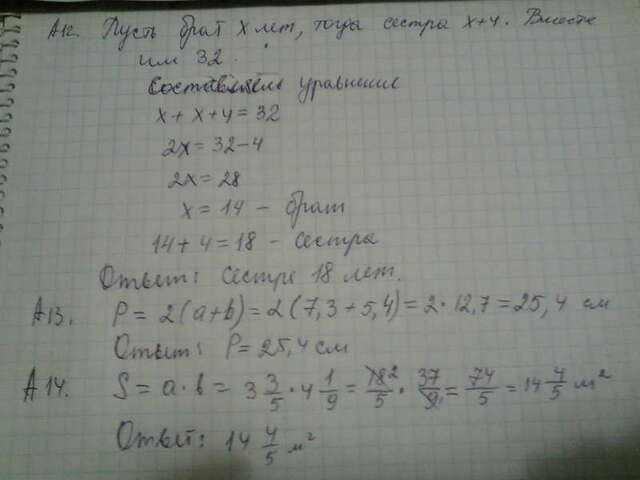 А12. Пусть брат x лет, тогда сестра x+4. Вместе
им 32.
Составляем уравнение
x + x + 4 = 32
2x = 32 - 4
2x = 28
x = 14 - брат
14 + 4 = 18 - сестра
Ответ: Сестре 18 лет.
А13. P = 2(a+b) = 2(7,3 + 5,4) = 2 · 12,7 = 25,4 см
Ответ: P = 25,4 см
А14. S = a · b = 3 3/5 · 4 1/9 = 18²/5 · 37/9₁ = 74/5 = 14 4/5 м²
Ответ: 14 4/5 м²